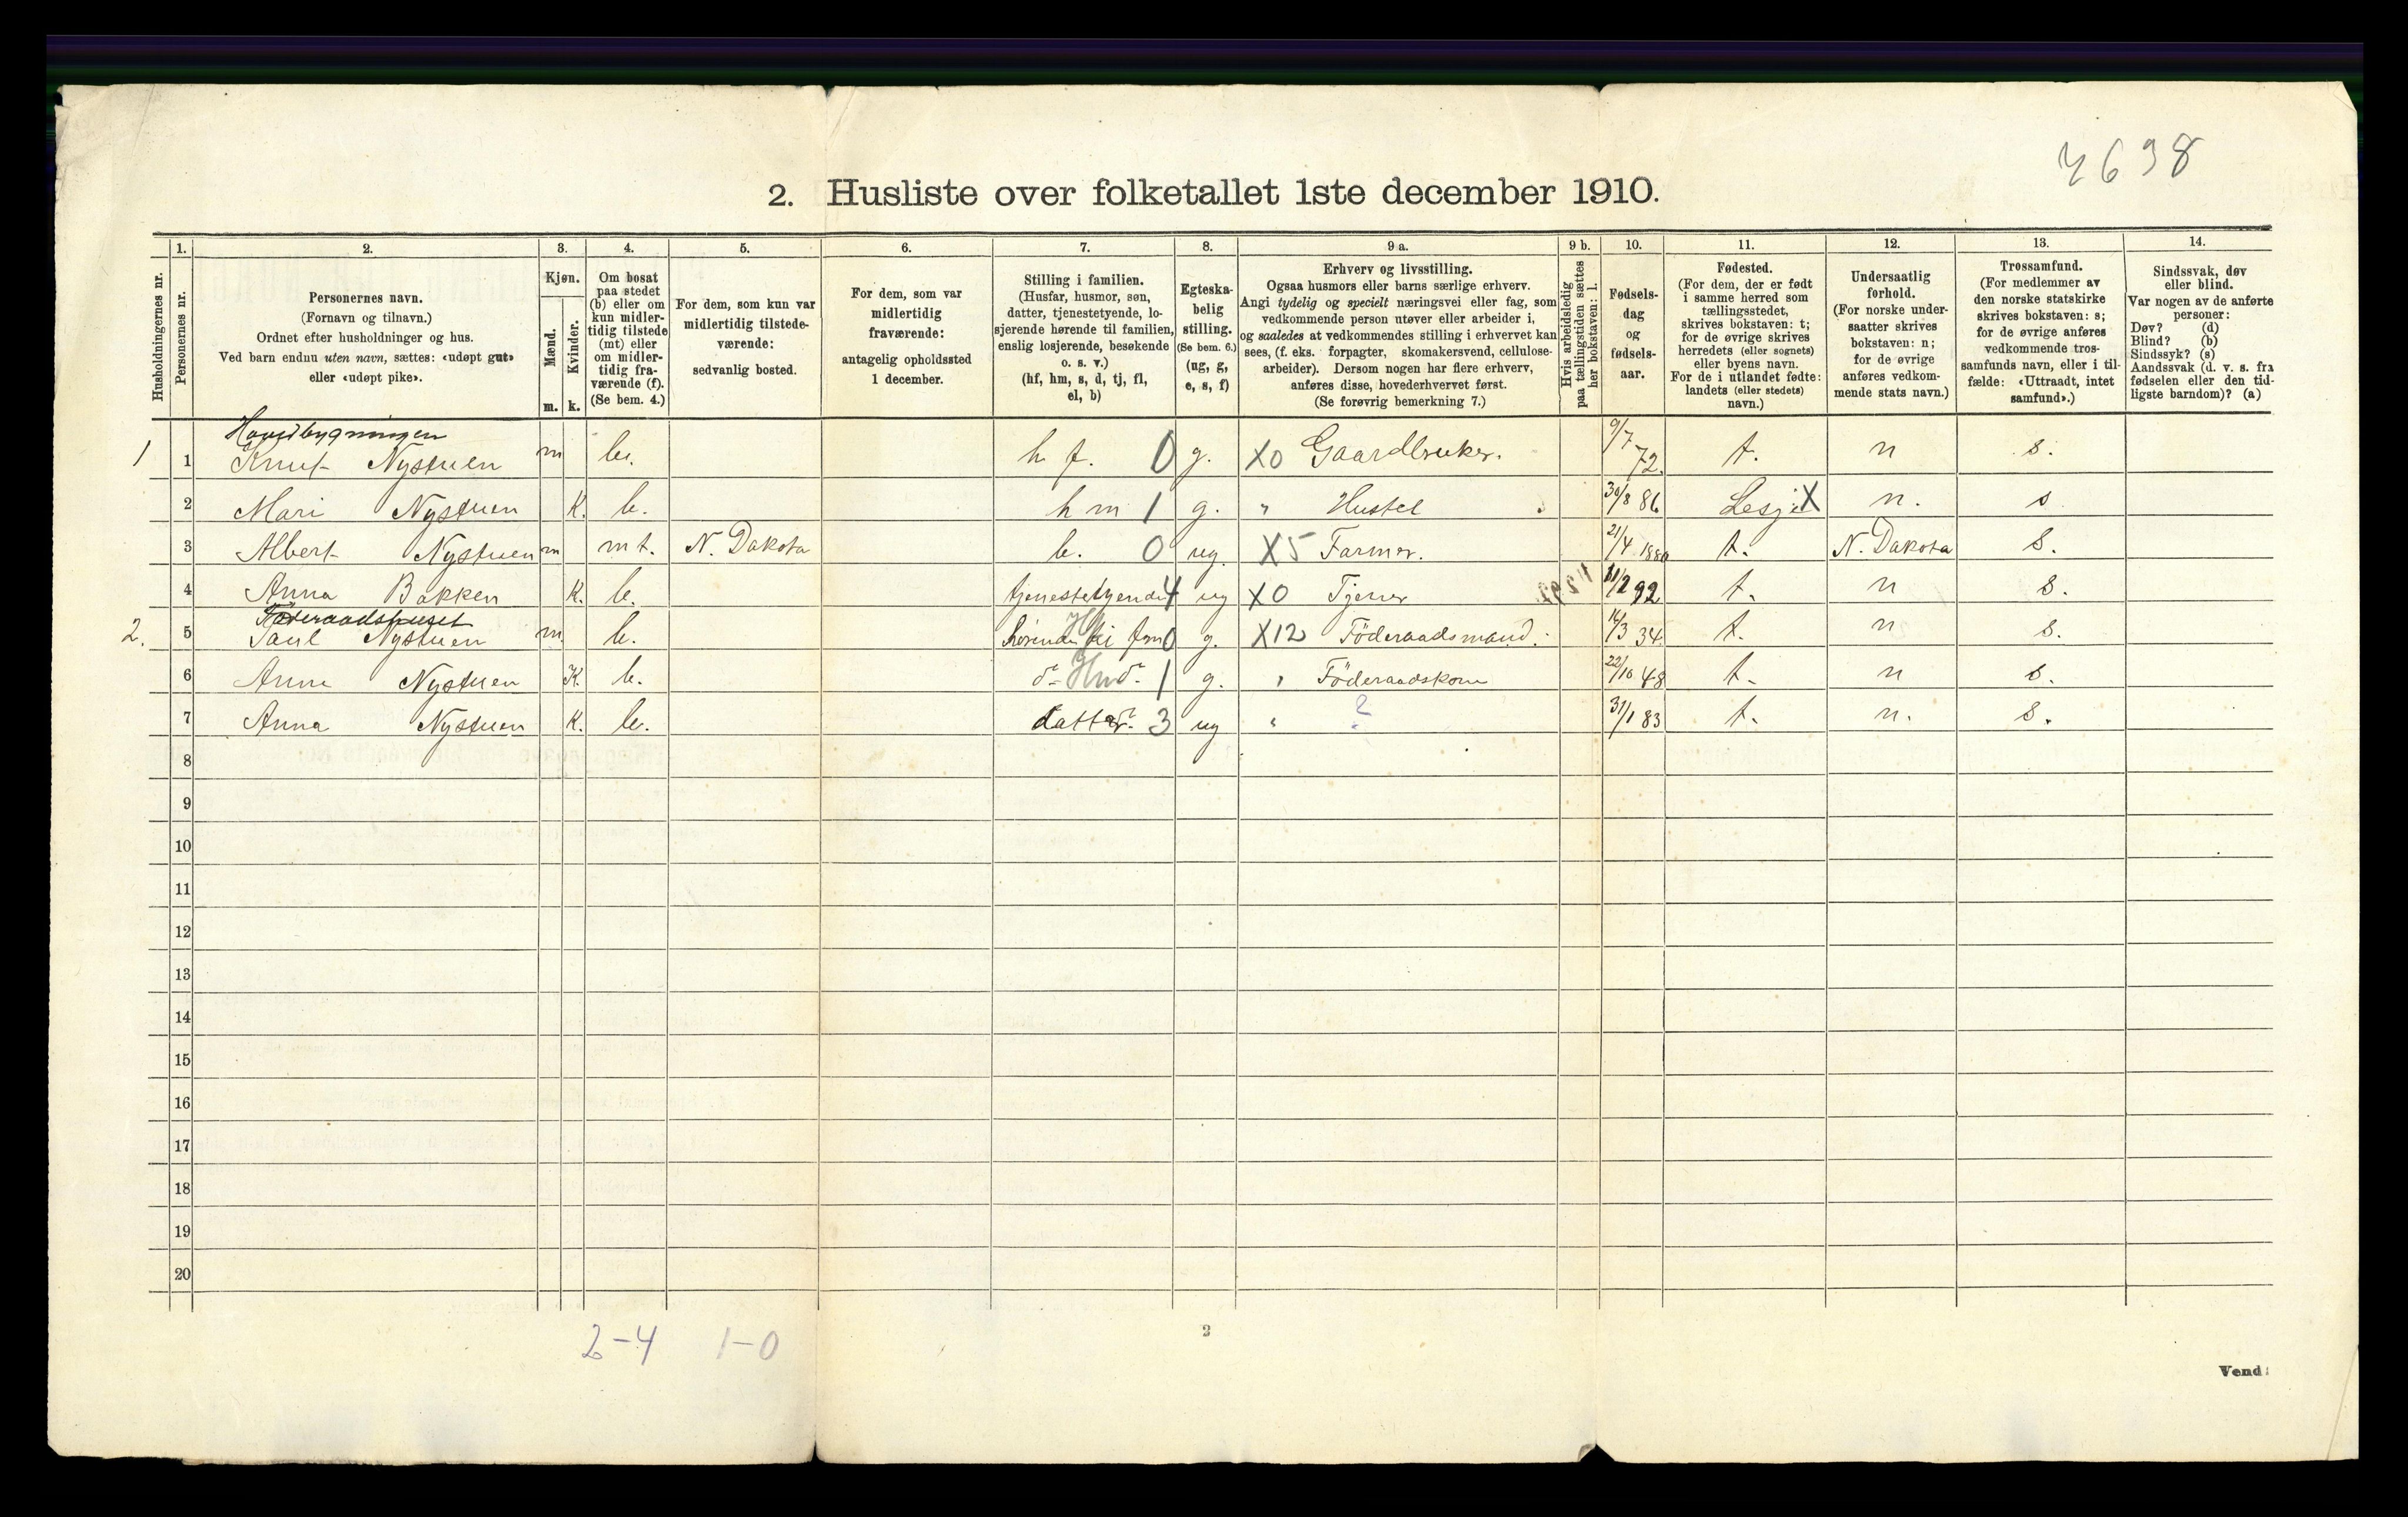 7638
2. Husliste over folketallet 1ste december 1910.
Husholdningernes nr.
1.
Personernes nr.
2.
Personernes navn.
(Fornavn og tilnavn.)
Ordnet efter husholdninger og hus.
Ved barn endnu uten navn, sættes: «udøpt gut»
eller «udøpt pike».
3.
Kjøn.
Mænd.
Kvinder.
m. k.
4.
Om bosat
paa stedet
(b) eller om
kun midler-
tidig tilstede
(mt) eller
om midler-
tidig fra-
værende (f).
(Se bem. 4.)
5.
For dem, som kun var
midlertidig tilstede-
værende:
sedvanlig bosted.
6.
For dem, som var
midlertidig
fraværende:
antagelig opholdssted
1 december.
7.
Stilling i familien.
(Husfar, husmor, søn,
datter, tjenestetyende, lo-
sjerende hørende til familien,
enslig losjerende, besøkende
o. s. v.)
(hf, hm, s, d, tj, fl,
el, b)
8.
Egteska-
belig
stilling.
(Se bem. 6.)
(ug, g,
e, s, f)
9 a.
Erhverv og livsstilling.
Ogsaa husmors eller barns særlige erhverv.
Angi tydelig og specielt næringsvei eller fag, som
vedkommende person utøver eller arbeider i,
og saaledes at vedkommendes stilling i erhvervet kan
sees, (f. eks. forpagter, skomakersvend, cellulose-
arbeider). Dersom nogen har flere erhverv,
anføres disse, hovederhvervet først.
(Se forøvrig bemerkning 7.)
9 b.
Hvis arbeidsledig
paa tællingstiden sættes
her bokstaven: l.
10.
Fødsels-
dag
og
fødsels-
aar.
11.
Fødested.
(For dem, der er født
i samme herred som
tællingsstedet,
skrives bokstaven: t;
for de øvrige skrives
herredets (eller sognets)
eller byens navn.
For de i utlandet fødte:
landets (eller stedets)
navn.)
12.
Undersaatlig
forhold.
(For norske under-
saatter skrives
bokstaven: n;
for de øvrige
anføres vedkom-
mende stats navn.)
13.
Trossamfund.
(For medlemmer av
den norske statskirke
skrives bokstaven: s;
for de øvrige anføres
vedkommende tros-
samfunds navn, eller i til-
fælde: «Uttraadt, intet
samfund».)
14.
Sindssvak, døv
eller blind.
Var nogen av de anførte
personer:
Døv? (d)
Blind? (b)
Sindssyk? (s)
Aandssvak (d. v. s. fra
fødselen eller den tid-
ligste barndom)? (a)
Hovedbygningen
1 1 Knut Nystuen m b. h f. 0 g. X0 Gaardbruker. 9/7 72. t. n s.
2 Mari Nystuen K. b. h m 1 g. " Hustel 30/8 86 Lesje X n. s
3 Albert Nystuen m m t. N. Dakota b. 0 ug. X5 Farmer. 21/4 1880 t. N. Dakota s.
4 Anna Bakken K. b. tjenestetyende 4 ug X0 Tjener 11/2 92 t. n s.
Føderaadshuset
2. 5 Paul Nystuen m b. 0 g. X12 Föderaadsmand. 14/3 34. t. n s.
6 Anne Nystuen K. b. do Hm do 1 g. " Föderaadskone 22/10 48 t. n s.
7 Anna Nystuen K. b. datter 3 ug " ? 31/1 83 t. n. s.
8
9
10
11
12
13
14
15
16
17
18
19
20
2-4 1-0
2
Vend!